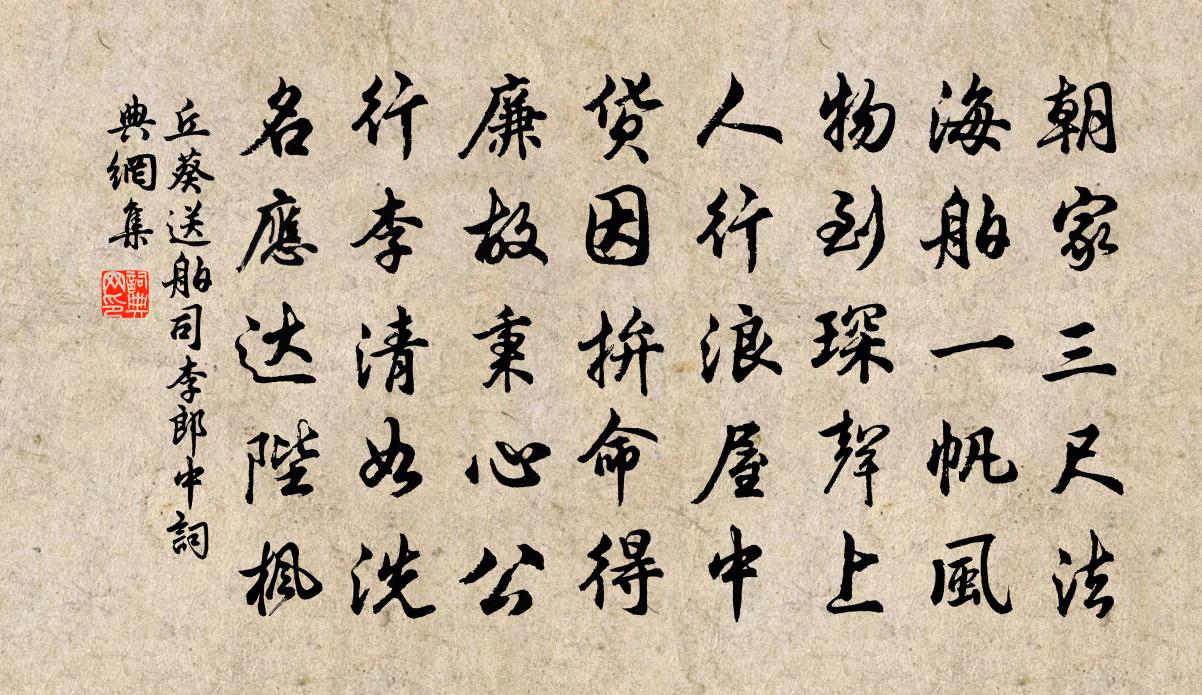 朝家三尺法
海舶一帆風
物到琛聲上
人行浪屋中
货因拚命得
廉故秉心公
行李清如洗
名應达陛楓
丘葵送舶司李郎中詞
典網集
詞典
网印